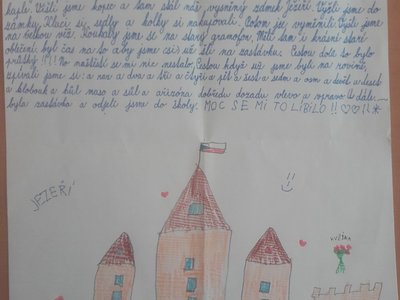 kaple. Vyšli jsme kopec a tam stál náš vysněný zámek Jezeří. Vyšli jsme do
zámku. Kluci si sedly a holky si nakupovali. Potom se vyměnili. Vyšli jsme
na velkou věž. Koukaly jsme se na starý gramofon. Měli tam i krásné staré
oblečení. byl čas na to aby jsme už šli na zastávku. Cestou dolů to bylo
prudký!!!! No naštěstí se mi nic nestalo. Cestou když už jsme byli na rovině,
zpívali jsme si: a ren a dva a tři a čtyři a pět a šest a sedm a osm a devět a deset
a klobouk a hůl maso a sůl a arizóra dopředu dozadu vlevo a vpravo. A dále
byla zastávka a odjeli jsme do školy. MOC SE MI TO LÍBILO!!♡♡!!*
JEZEŘÍ